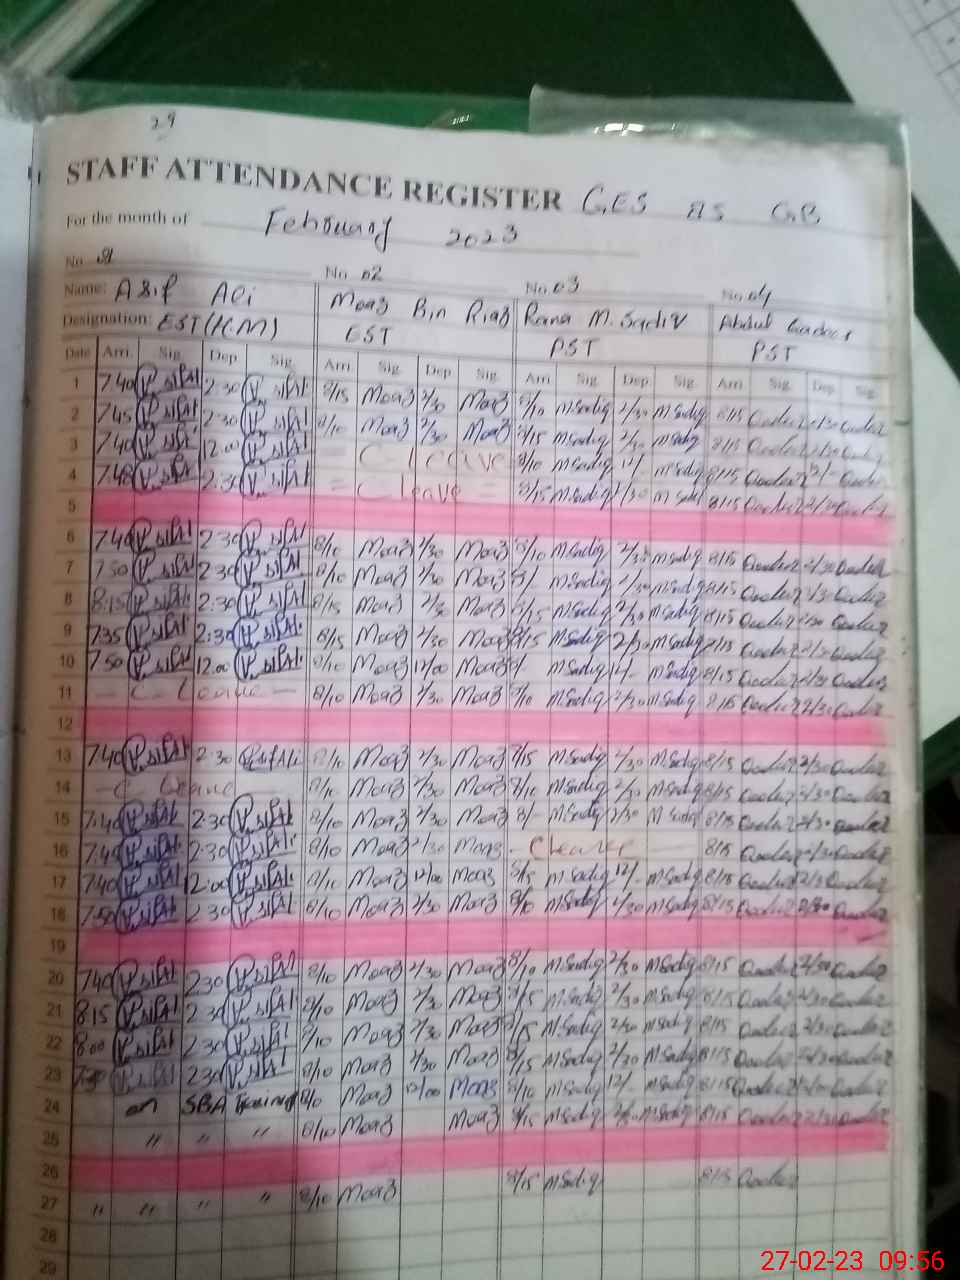 29
STAFF ATTENDANCE REGISTER GES 85 GB
For the month of February 2023
No. 01 No. 02 No. 03 No. 04
Name: Asif Ali Moaz Bin Riaz Rana M. Sadiq Abdul Qadeer
Designation: EST (H.M) EST PST PST
Date Arri. Sig. Dep. Sig. Arri. Sig. Dep. Sig. Arri. Sig. Dep. Sig. Arri. Sig. Dep. Sig.
1 7:40 2:30 8/15 Moaz 2/30 Moaz 8/10 M.Sadiq 2/30 M.Sadiq 8/15 Qadeer 2/30 Qadeer
2 7:45 2:30 8/10 Moaz 2/30 Moaz 8/15 M.Sadiq 2/30 M.Sadiq 8/15 Qadeer 2/30 Qadeer
3 7:40 12:00 C-leave 8/10 M.Sadiq 12/- M.Sadiq 8/15 Qadeer 12/- Qadeer
4 7:48 2:30 = C leave = 8/15 M.Sadiq 2/30 M.Sadiq 8/15 Qadeer 2/30 Qadeer
5
6 7:40 2:30 8/10 Moaz 2/30 Moaz 8/10 M.Sadiq 2/30 M.Sadiq 8/15 Qadeer 2/30 Qadeer
7 7:50 2:30 8/10 Moaz 2/30 Moaz 8/- M.Sadiq 2/30 M.Sadiq 8/15 Qadeer 2/30 Qadeer
8 8:15 2:30 8/15 Moaz 2/30 Moaz 8/15 M.Sadiq 2/30 M.Sadiq 8/15 Qadeer 2/30 Qadeer
9 7:35 2:30 8/15 Moaz 2/30 Moaz 8/15 M.Sadiq 2/30 M.Sadiq 8/15 Qadeer 2/30 Qadeer
10 7:50 12:00 8/10 Moaz 12/00 Moaz 8/- M.Sadiq 12/- M.Sadiq 8/15 Qadeer Qadeer
11 - C-Leave - 8/10 Moaz 2/30 Moaz 8/10 M.Sadiq 2/30 M.Sadiq 8/15 Qadeer 2/30 Qadeer
12
13 7:40 2:30 Asif Ali 8/10 Moaz 2/30 Moaz 8/15 M.Sadiq 2/30 M.Sadiq 8/15 Qadeer 2/30 Qadeer
14 - C Leave 8/10 Moaz 2/30 Moaz 8/10 M.Sadiq 2/30 M.Sadiq 8/15 Qadeer 2/30 Qadeer
15 7:40 2:30 8/10 Moaz 2/30 Moaz 8/- M.Sadiq 2/30 M.Sadiq 8/15 Qadeer 2/30 Qadeer
16 7:45 2:30 8/10 Moaz 2/30 Moaz - C leave - 8/15 Qadeer 2/30 Qadeer
17 7:40 12:00 8/10 Moaz 12/00 Moaz 8/15 M.Sadiq 12/- M.Sadiq 8/15 Qadeer Qadeer
18 7:50 2:30 8/10 Moaz 2/30 Moaz 8/10 M.Sadiq 2/30 M.Sadiq 8/15 Qadeer Qadeer
19
20 7:40 2:30 8/10 Moaz 2/30 Moaz 8/10 M.Sadiq 2/30 M.Sadiq 8/15 Qadeer 2/30 Qadeer
21 8:15 2:30 8/10 Moaz 2/30 Moaz 8/15 M.Sadiq 2/30 M.Sadiq 8/15 Qadeer 2/30 Qadeer
22 8:00 2:30 8/10 Moaz 2/30 Moaz 8/15 M.Sadiq 2/30 M.Sadiq 8/15 Qadeer 2/30 Qadeer
23 2:30 8/10 Moaz 2/30 Moaz 8/15 M.Sadiq 2/30 M.Sadiq 8/15 Qadeer 2/30 Qadeer
24 on SBA Training 8/10 Moaz 12/00 Moaz 8/10 M.Sadiq 12/- M.Sadiq 8/15 Qadeer Qadeer
25 " " " 8/10 Moaz Moaz 8/15 M.Sadiq 2/30 M.Sadiq 8/15 Qadeer 2/30 Qadeer
26
27 " " " " 8/10 Moaz 8/15 M.Sadiq 8/15 Qadeer
28
29
27-02-23 09:56